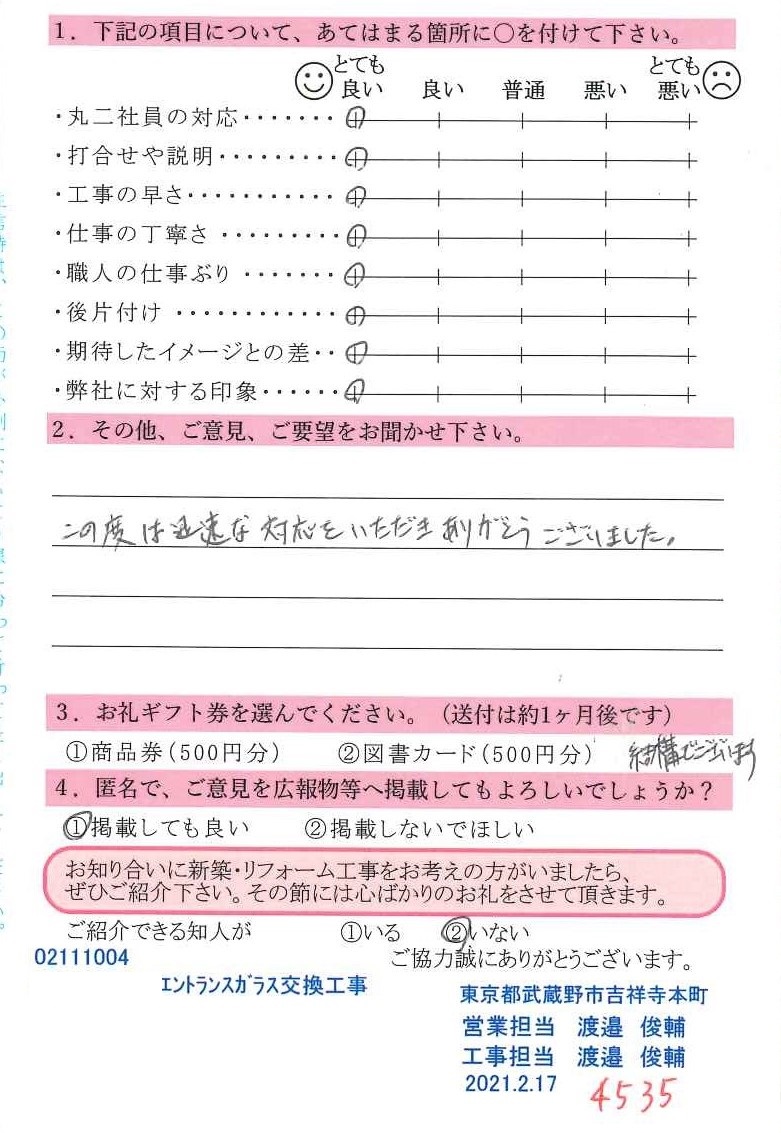 1. 下記の項目について、あてはまる箇所に○を付けて下さい。
とても良い 良い 普通 悪い とても悪い
・丸二社員の対応・・・・・・・
・打合せや説明・・・・・・・・・
・工事の早さ・・・・・・・・・・・
・仕事の丁寧さ・・・・・・・・・
・職人の仕事ぶり・・・・・・・
・後片付け・・・・・・・・・・・・
・期待したイメージとの差・・
・弊社に対する印象・・・・・・
2. その他、ご意見、ご要望をお聞かせ下さい。
この度は迅速な対応をいただきありがとうございました。
3. お礼ギフト券を選んでください。(送付は約1ヶ月後です)
①商品券(500円分) ②図書カード(500円分) 結構でございます
4. 匿名で、ご意見を広報物等へ掲載してもよろしいでしょうか?
①掲載しても良い ②掲載しないでほしい
お知り合いに新築・リフォーム工事をお考えの方がいましたら、
ぜひご紹介下さい。その節には心ばかりのお礼をさせて頂きます。
ご紹介できる知人が ①いる ②いない
02111004 ご協力誠にありがとうございます。
エントランスガラス交換工事
東京都武蔵野市吉祥寺本町
営業担当 渡邉 俊輔
工事担当 渡邉 俊輔
2021.2.17 4535